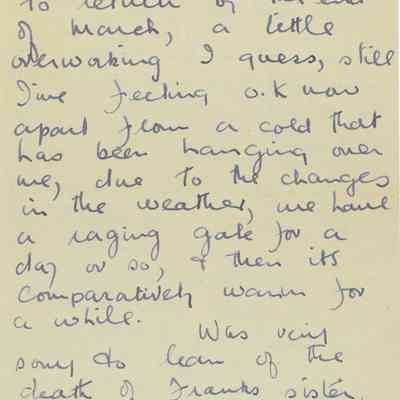 to return by the end
of March, a little
overworking I guess, still
I'me feeling o.k now
apart from a cold that
has been hanging over
me, due to the changes
in the weather, we have
a raging gale for a
day or so, & then its
comparatively warm for
a while. Was very
sorry to lean of the
death of Franks sister,